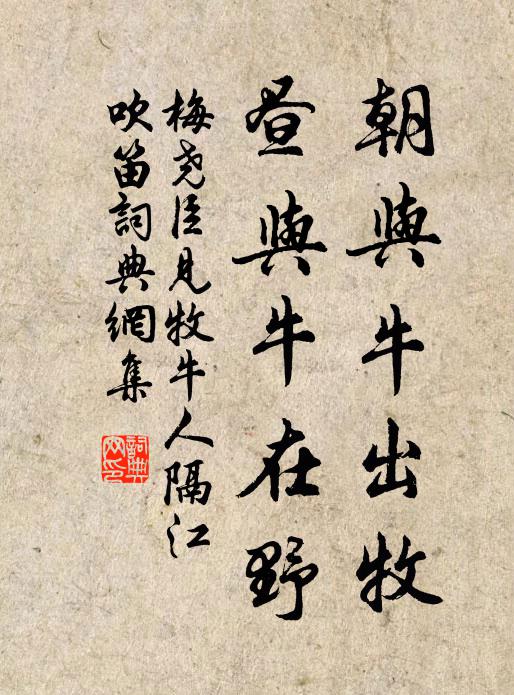 朝與牛出牧
晝與牛在野
梅堯臣見牧牛人隔江
吹笛詞典網集
詞典网印